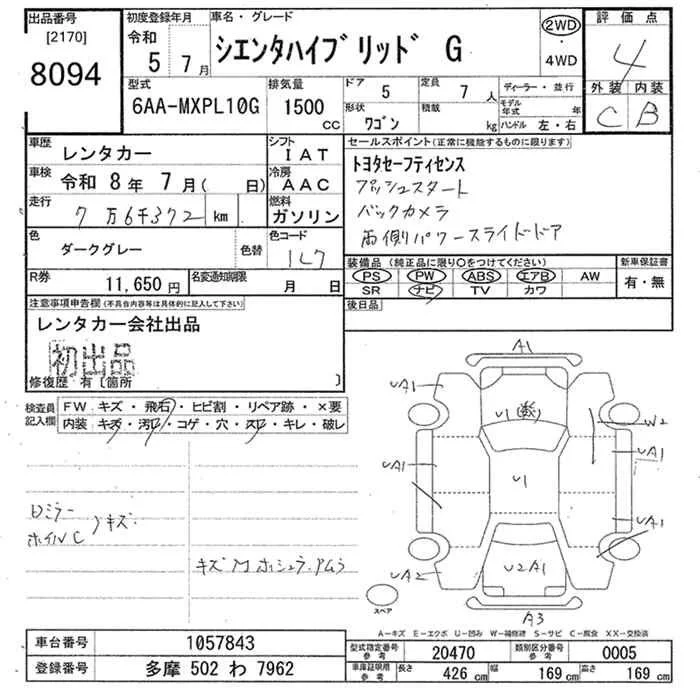 出品番号
[2170]
8094
初度登録年月
令和
5 7月
車名・グレード
シエンタハイブリッド G
2WD
・
4WD
評価点
4
外装 内装
C B
型式
6AA-MXPL10G
排気量
1500
CC
ドア
5
定員
7 人
形状
ワゴン
積載
kg
ディーラー・並行
モデル年式 年
ハンドル 左・右
車歴
レンタカー
シフト
IAT
車検
令和 8年 7月( 日)
冷房
AAC
走行
7万6千372 km
燃料
ガソリン
色
ダークグレー
色替
色コード
1L7
R券
11,650 円
名変通知期限
月 日
セールスポイント(正常に機能するものに限ります)
トヨタセーフティセンス
プッシュスタート
バックカメラ
両側パワースライドドア
装備品 (純正品に限り○をつけてください)
PS PW ABS エアB AW
SR ナビ TV カワ
新車保証書
有・無
後日品
注意事項申告欄(不具合内容等は具体的に記入して下さい)
レンタカー会社出品
初出品
修復歴 有〔箇所 〕
検査員
記入欄
FW キズ・飛石・ヒビ割・リペア跡・×要
内装 キズ・汚レ・コゲ・穴・スレ・キレ・破レ
Dミラー
ホイルC
キズ
キズ M
A1
UA1
U1
W2
UA1
UA1
U1
UA1
UA2
U2A1
A3
スペア
A-キズ E-エクボ U-凹み W-補修跡 S-サビ C-腐食 XX-交換済
車台番号
1057843
登録番号
多摩 502 わ 7962
型式指定番号
参考
20470
類別区分番号
参考
0005
車庫証明用
参考
長さ
426 cm
幅
169 cm
高さ
169 cm